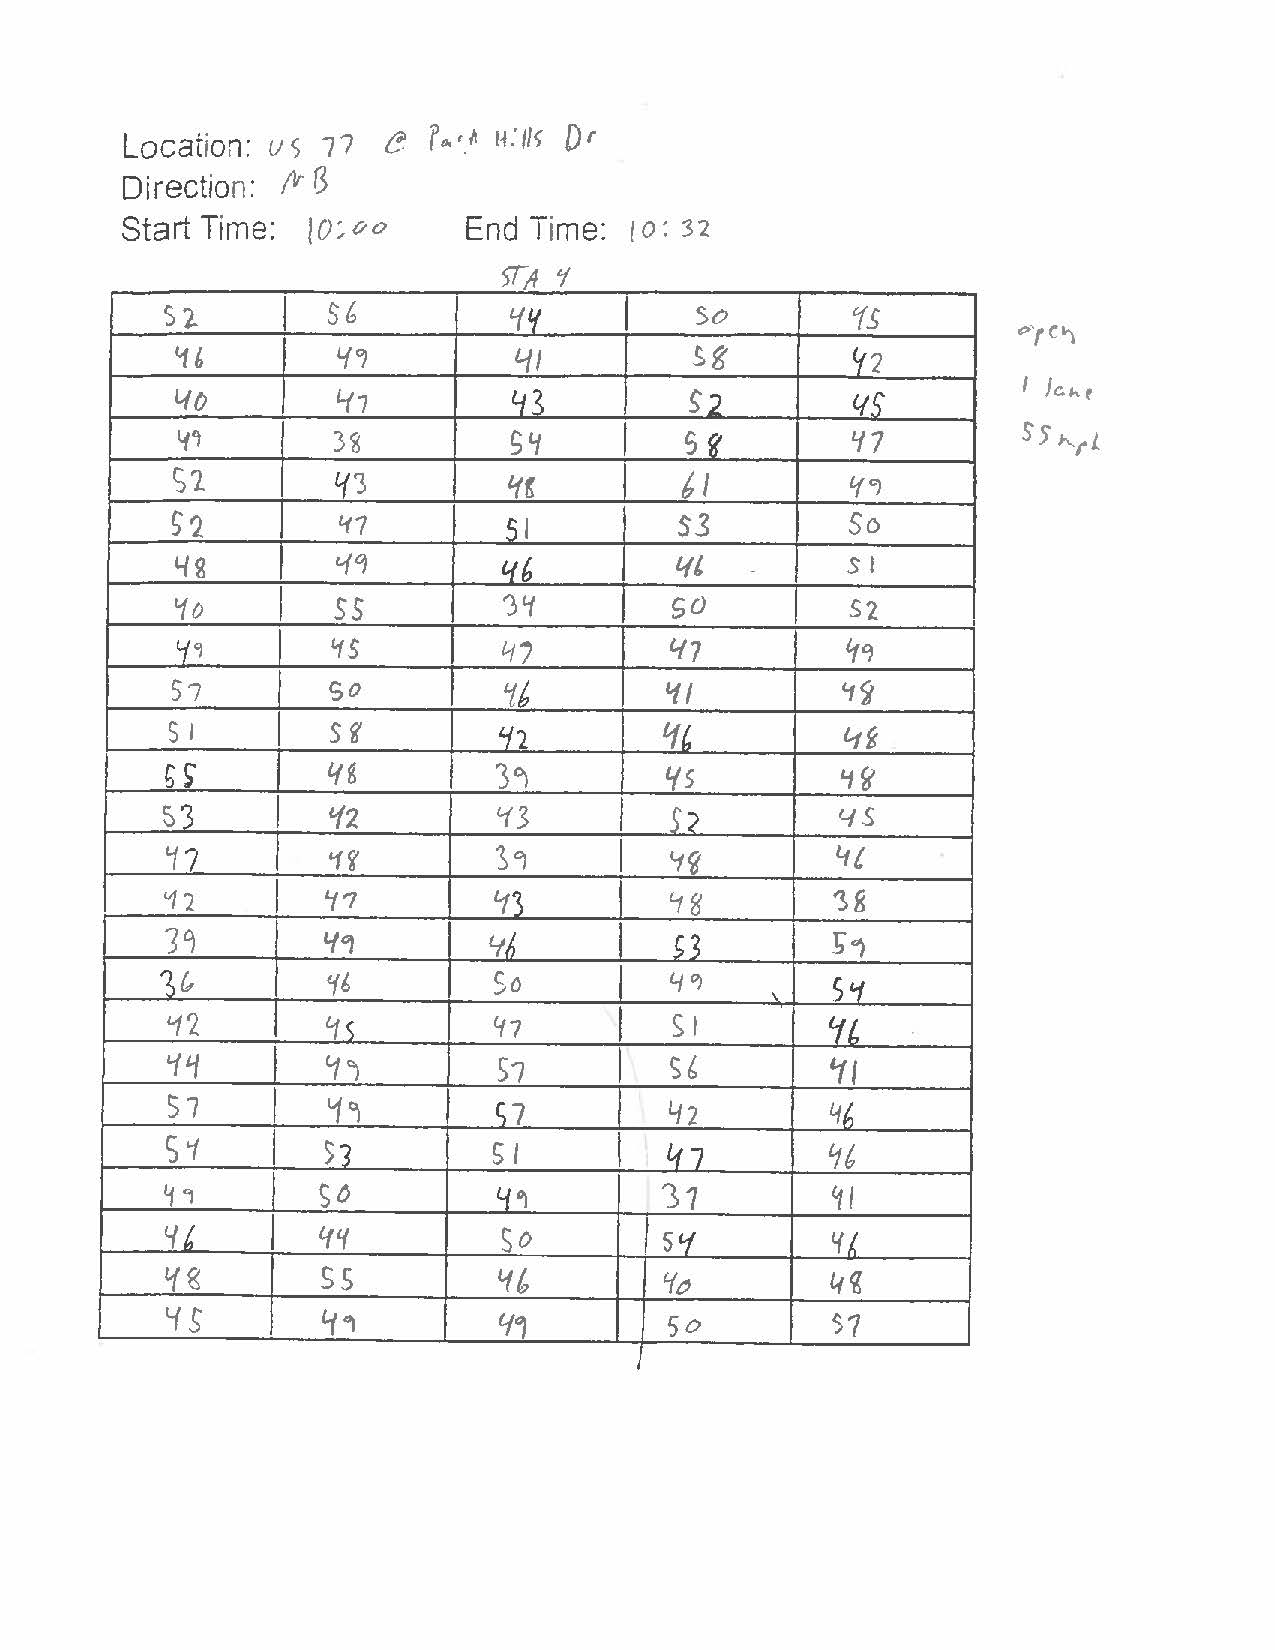 Location: US 77 @ Park Hills Dr
Direction: NB
Start Time: 10:00 End Time: 10:32
STA 4
52 56 44 50 45
open
46 49 41 58 42
1 lane
40 47 43 52 45
55 mph
49 38 54 58 47
52 43 48 61 49
52 47 51 53 50
48 49 46 46 51
40 55 34 50 52
49 45 47 47 49
57 50 46 41 48
51 58 42 46 48
55 48 39 45 48
53 42 43 52 45
47 48 39 48 46
42 47 43 48 38
39 49 46 53 59
36 46 50 49 54
42 45 47 51 46
44 49 57 56 41
57 49 57 42 46
54 53 51 47 46
49 50 49 37 41
46 44 50 54 46
48 55 46 40 48
45 49 49 50 57